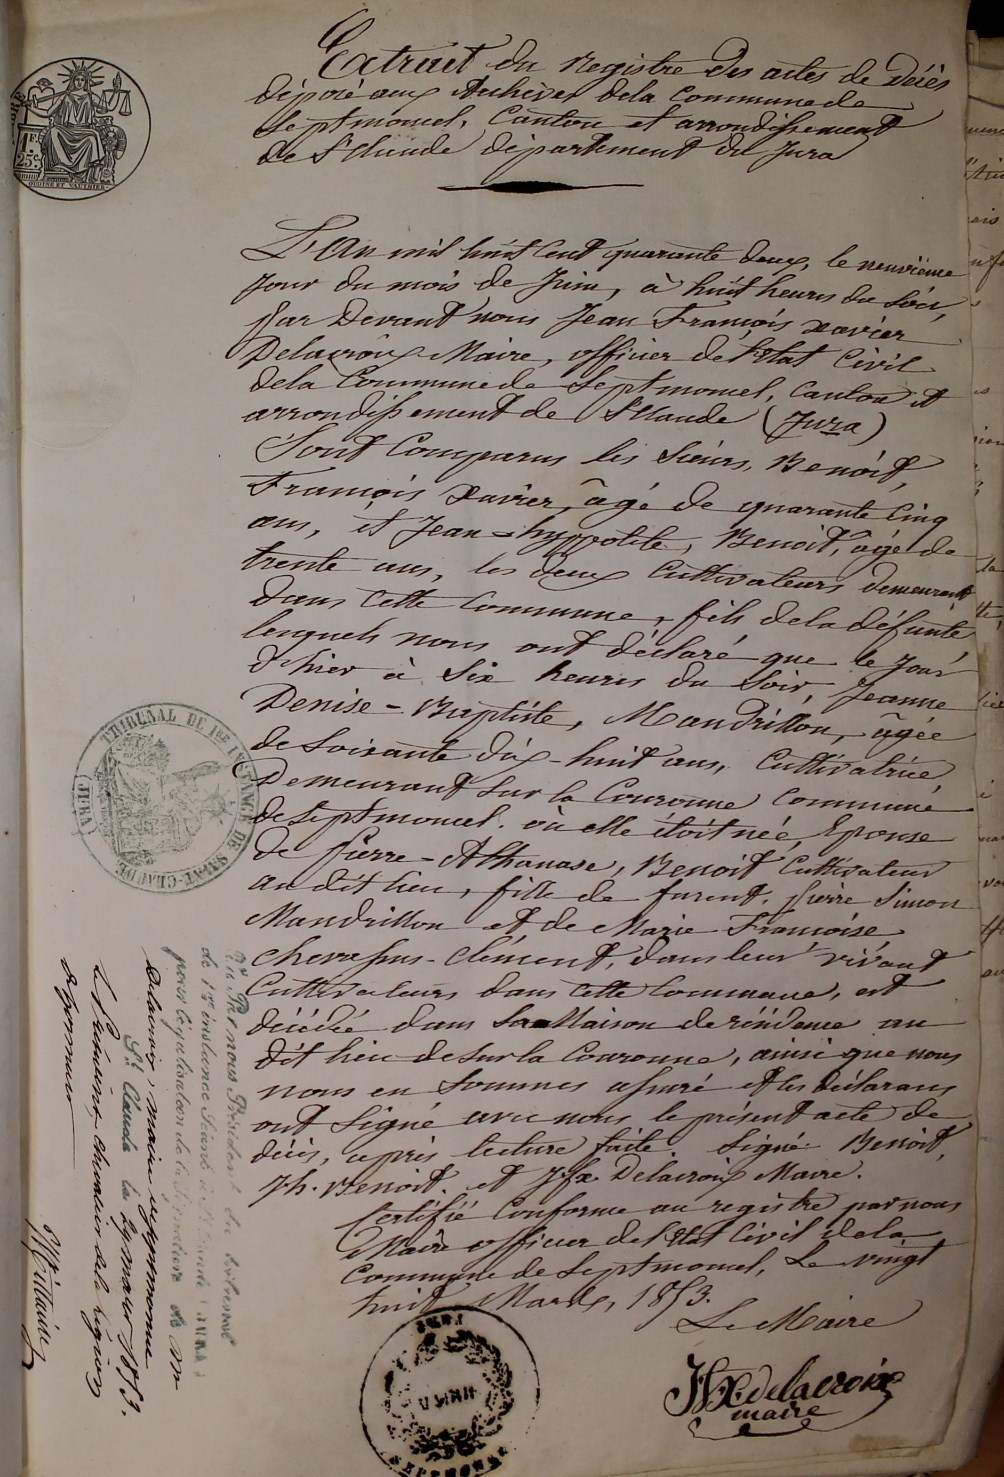 Extrait du Registre des actes de Décès
déposé aux Archives de la Commune de
Septmoncel, Canton et arrondissement
de St Claude département du Jura
L'An mil huit cent quarante deux, le neuvième
jour du mois de Juin, à huit heures du Soir,
par Devant nous Jean François Xavier
Delacroix Maire, officier de l'Etat Civil
de la Commune de Septmoncel, Canton et
arrondissement de St Claude (Jura)
Sont Comparus les Sieurs, Benoit,
François Xavier, âgé de quarante Cinq
ans, et Jean=hyppolite, Benoit, âgé de
trente ans, les deux Cultivateurs demeurant
dans cette Commune, fils de la défunte
lesquels nous ont déclaré que le jour
d'hier à Six heures du Soir, Jeanne
Denise-Baptiste, Mandrillon, âgée
de Soixante dix-huit ans, Cultivatrice
Demeurant Sur la Couronne Commune
de Septmoncel. où elle étoit née, Epouse
de pierre-Athanase, Benoit Cultivateur
au dit lieu, fille de furent, pierre Simon
Mandrillon et de Marie Françoise
Chevassus-Clément, dans leur vivant
Cultivateurs dans cette Commune, est
décédée dans Sa Maison de résidence au
dit lieu de Sur la Couronne, ainsi que nous
nous en Sommes assuré et les déclarans
ont Signé avec nous le présent acte de
décès, après lecture faite. Signé Benoit,
Jh. Benoit. et Jfx Delacroix Maire.
Certifié Conforme au registre par nous
Maire officier de l'Etat Civil de la
Commune de Septmoncel, Le vingt
huit Mars, 1853.
Le Maire
JFX Delacroix
maire
1F.
25c.
TRIBUNAL DE 1ERE INSTANCE DE SAINT-CLAUDE
(JURA)
Vu Par nous Président du tribunal
de 1re instance Séant à St Claude (JURA)
pour légalisation de la Signature de Mr
Delacroix, maire de Septmoncel
St Claude le 29 mars 1853.
Le Président, chevalier de la légion
d'honneur
JURA
MAIRIE
SEPTMONCEL